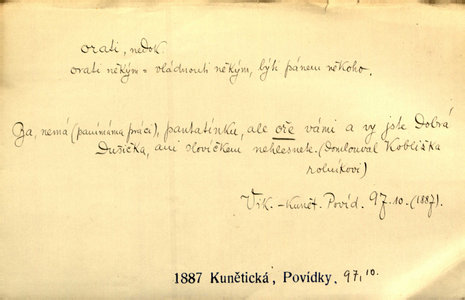 orati, nedok.
orati někým = vládnouti někým, býti pánem někoho.
Ba, nemá (panímáma práci), pantatínku, ale oře vámi a vy jste Dobrá
Dušička, ani slovíčkem nehlesnete. (domlouval Kobližka
rolníkovi)
Vik. - Kunět. Povíd. 97.10. (1887).
1887 Kunětická, Povídky, 97,10.